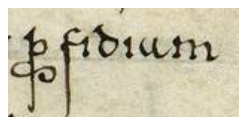 p̄ſidium